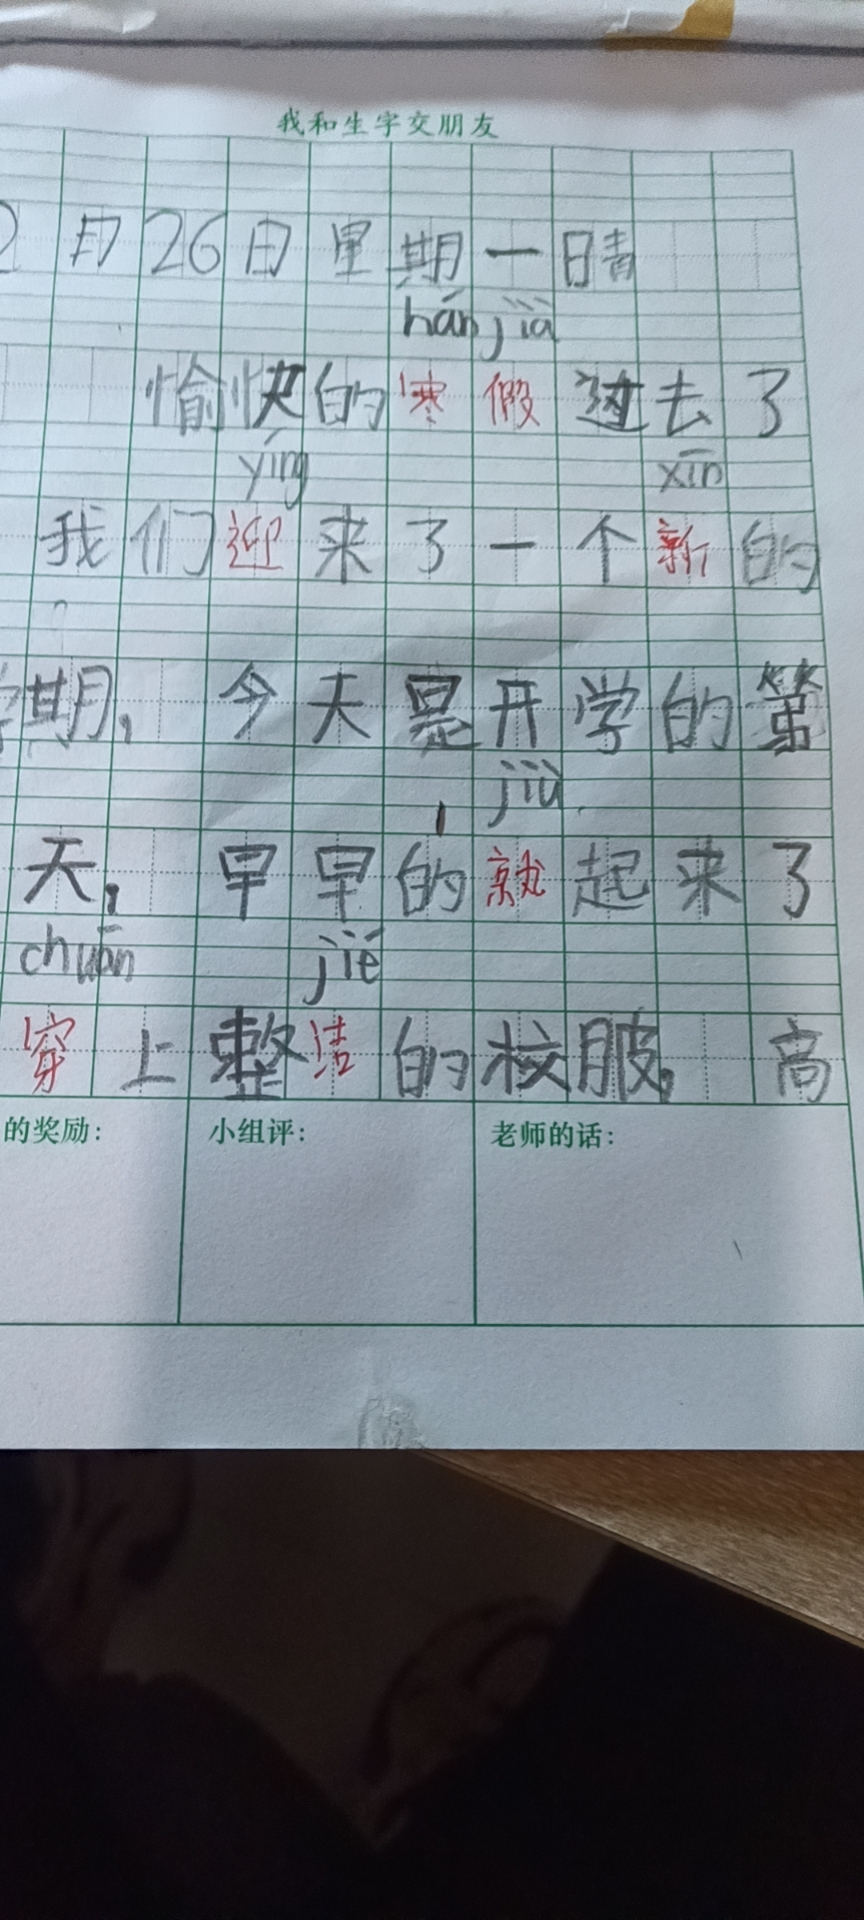 我和生字交朋友
2月26日星期一晴
hán jià
愉快的寒假过去了
yíng xīn
我们迎来了一个新的
学期，今天是开学的第
jiù
天，早早的就起来了
chuān jié
穿上整洁的校服，高
的奖励：小组评：老师的话：